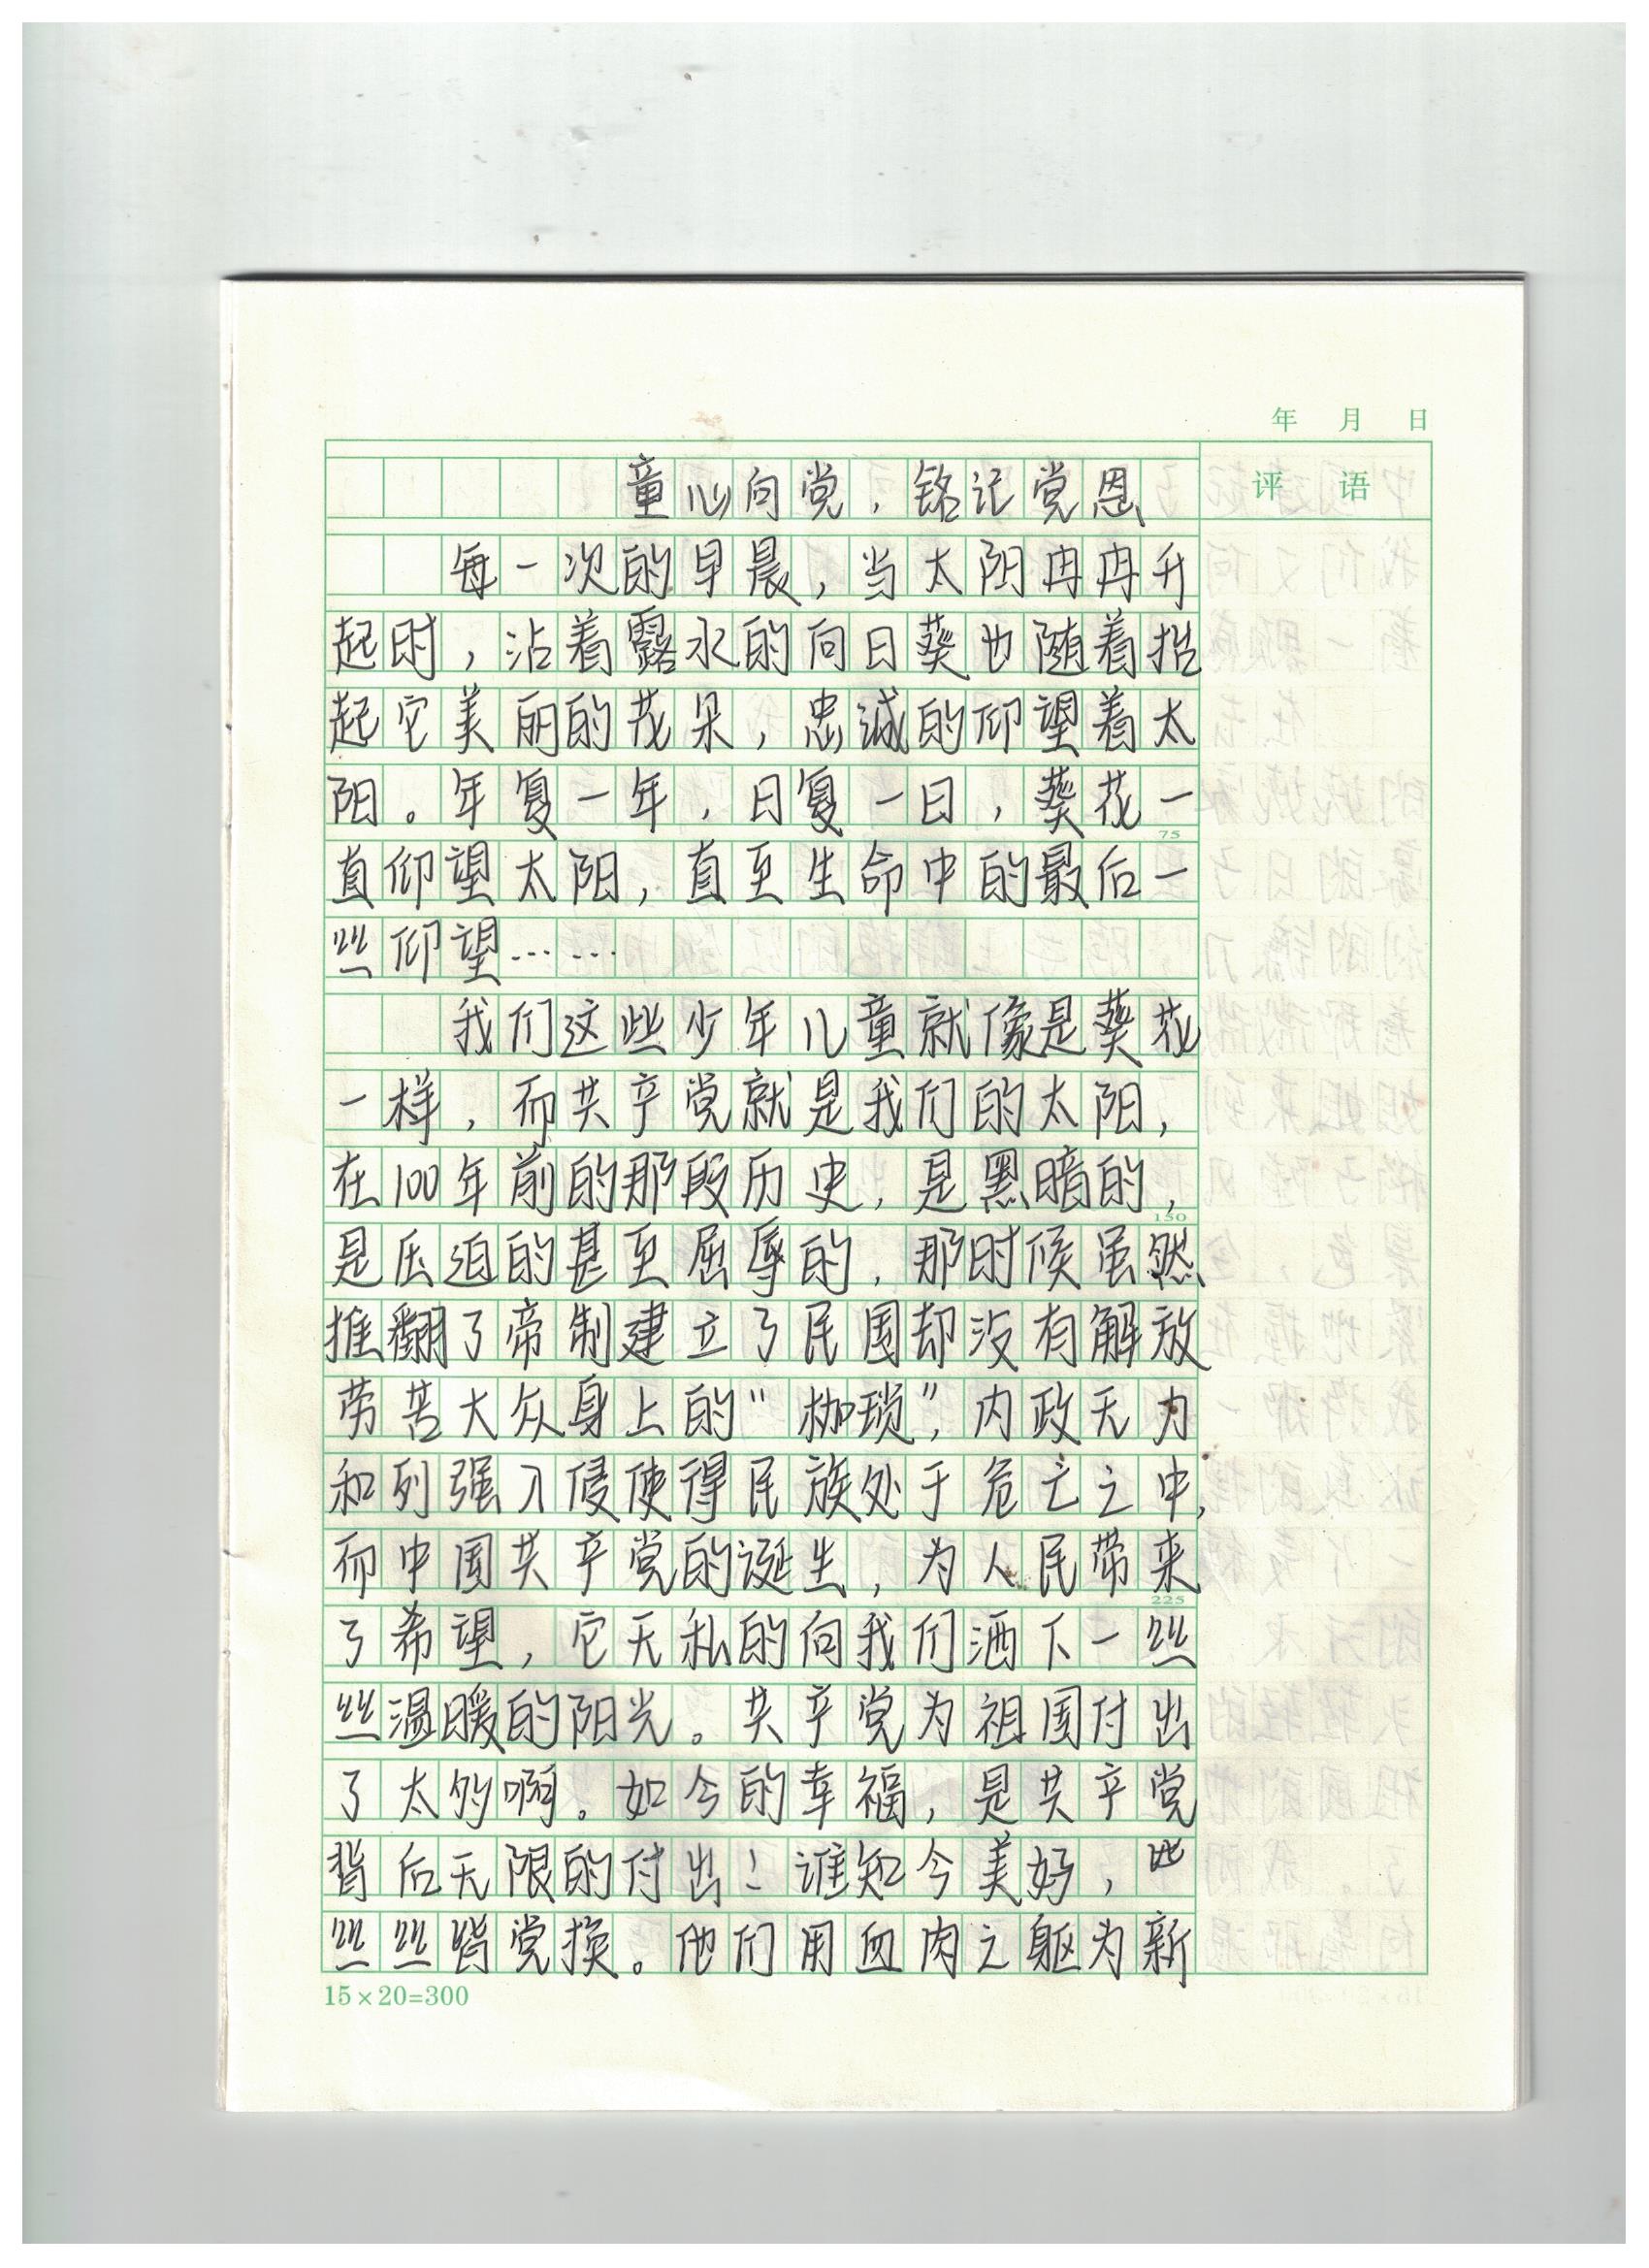 年 月 日
评 语
童心向党，铭记党恩
每一次的早晨，当太阳冉冉升
起时，沾着露水的向日葵也随着抬
起它美丽的花朵，忠诚的仰望着太
阳。年复一年，日复一日，葵花一
75
直仰望太阳，直至生命中的最后一
丝仰望……
我们这些少年儿童就像是葵花
一样，而共产党就是我们的太阳，
在100年前的那段历史，是黑暗的，
150
是压迫的甚至屈辱的，那时候虽然
推翻了帝制建立了民国却没有解放
劳苦大众身上的“枷琐”，内政无力
和列强入侵使得民族处于危亡之中，
而中国共产党的诞生，为人民带来
225
了希望，它无私的向我们洒下一丝
丝温暖的阳光。共产党为祖国付出
了太多啊。如今的幸福，是共产党
背后无限的付出！谁知今美好，
丝丝皆党换。他们用血肉之躯为新
15×20=300